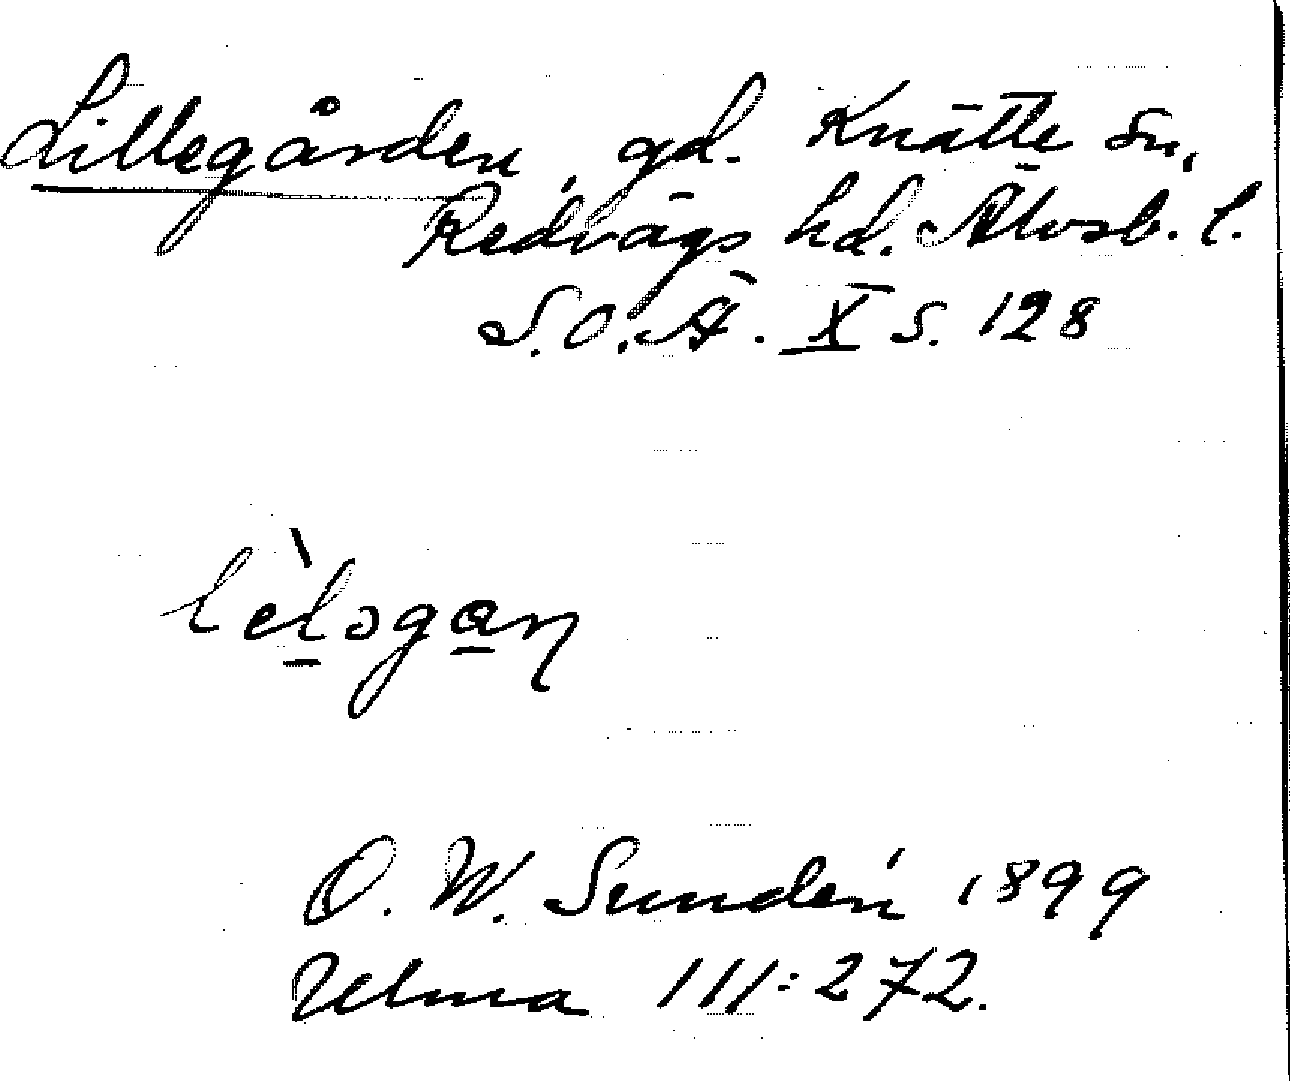 Lillegården, gd. Knätte sn,
Redvägs hd. Älvsb. l.
S.O.Ä. X s. 128
O. W. Sundén 1899
Ulma 111:272.